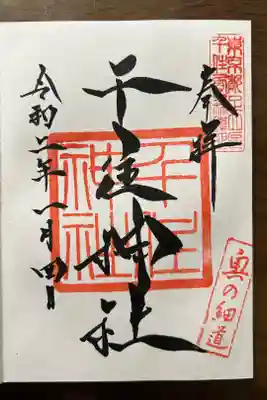 奉拝
千住神社
千住神社
令和六年一月四日
奥の細道